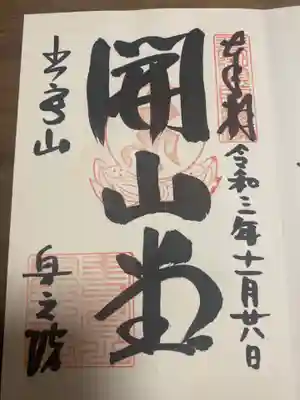 奉拝
令和三年十一月廿八日
開山堂
書写山
奥之院